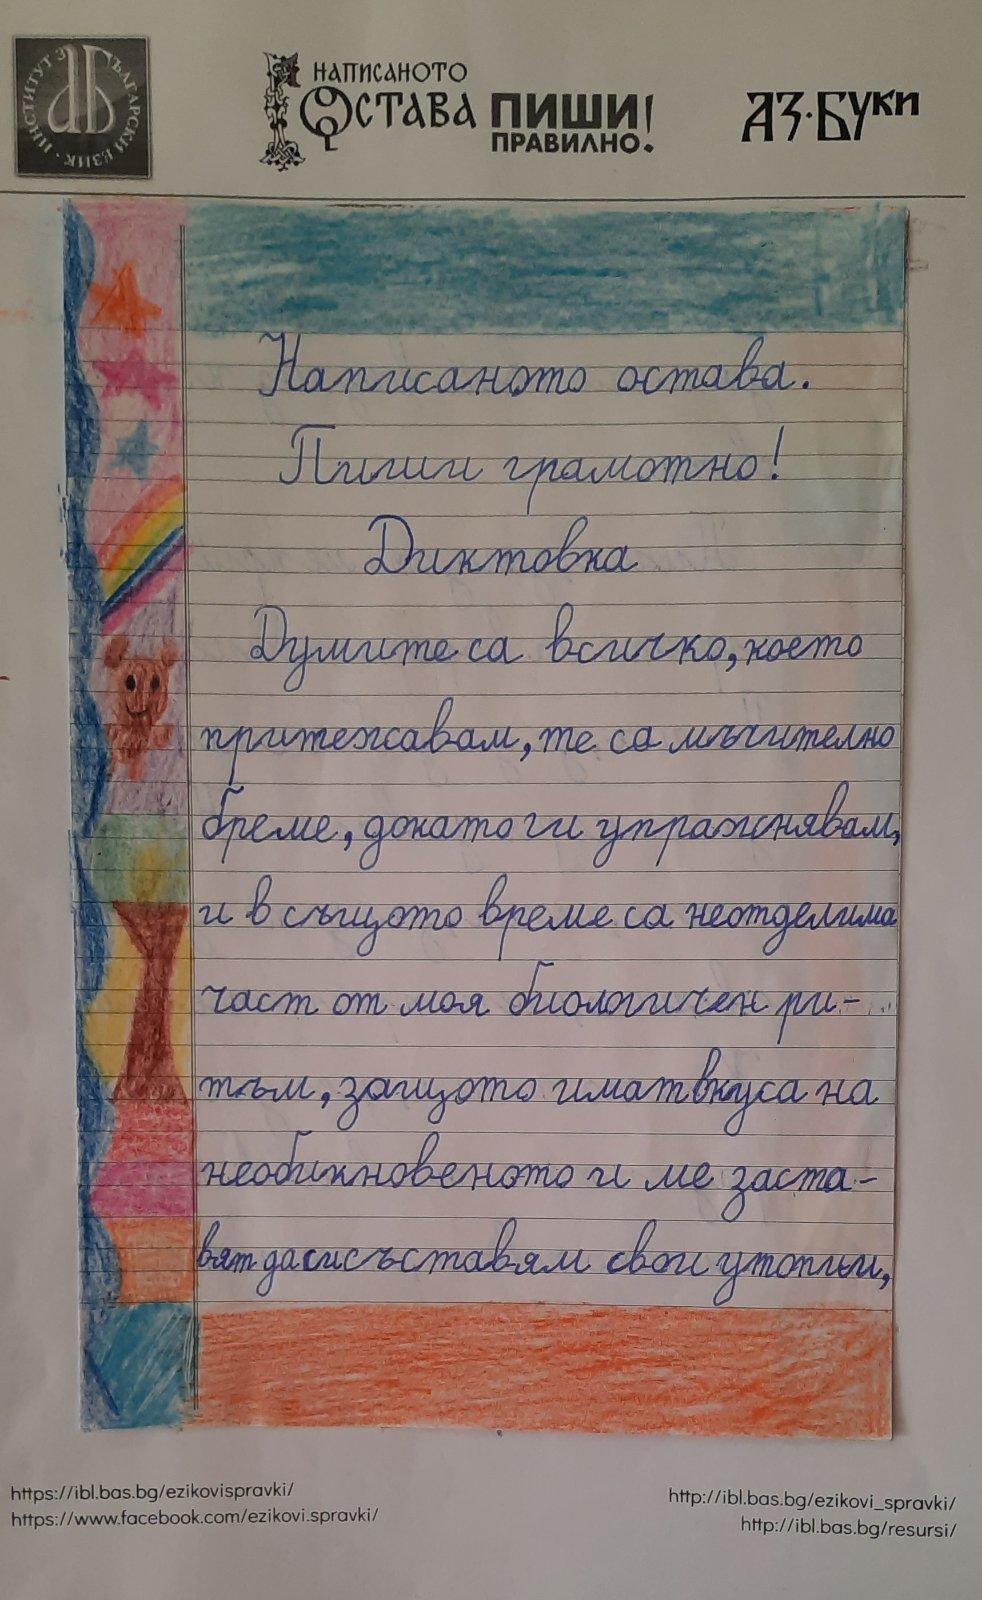 ИНСТИТУТ ЗА БЪЛГАРСКИ ЕЗИК
НАПИСАНОТО
ОСТАВА
ПИШИ!
ПРАВИЛНО.
АЗ·БУКИ
Написаното остава.
Пиши грамотно!
Диктовка
Думите са всичко, което
притежавам, те са мъчително
бреме, докато ги упражнявам,
и в същото време са неотделима
част от моя биологичен ри-
тъм, защото имат вкуса на
необикновеното и ме заста-
вят да си съставям свои утопии,
https://ibl.bas.bg/ezikovispravki/
https://www.facebook.com/ezikovi.spravki/
http://ibl.bas.bg/ezikovi_spravki/
http://ibl.bas.bg/resursi/